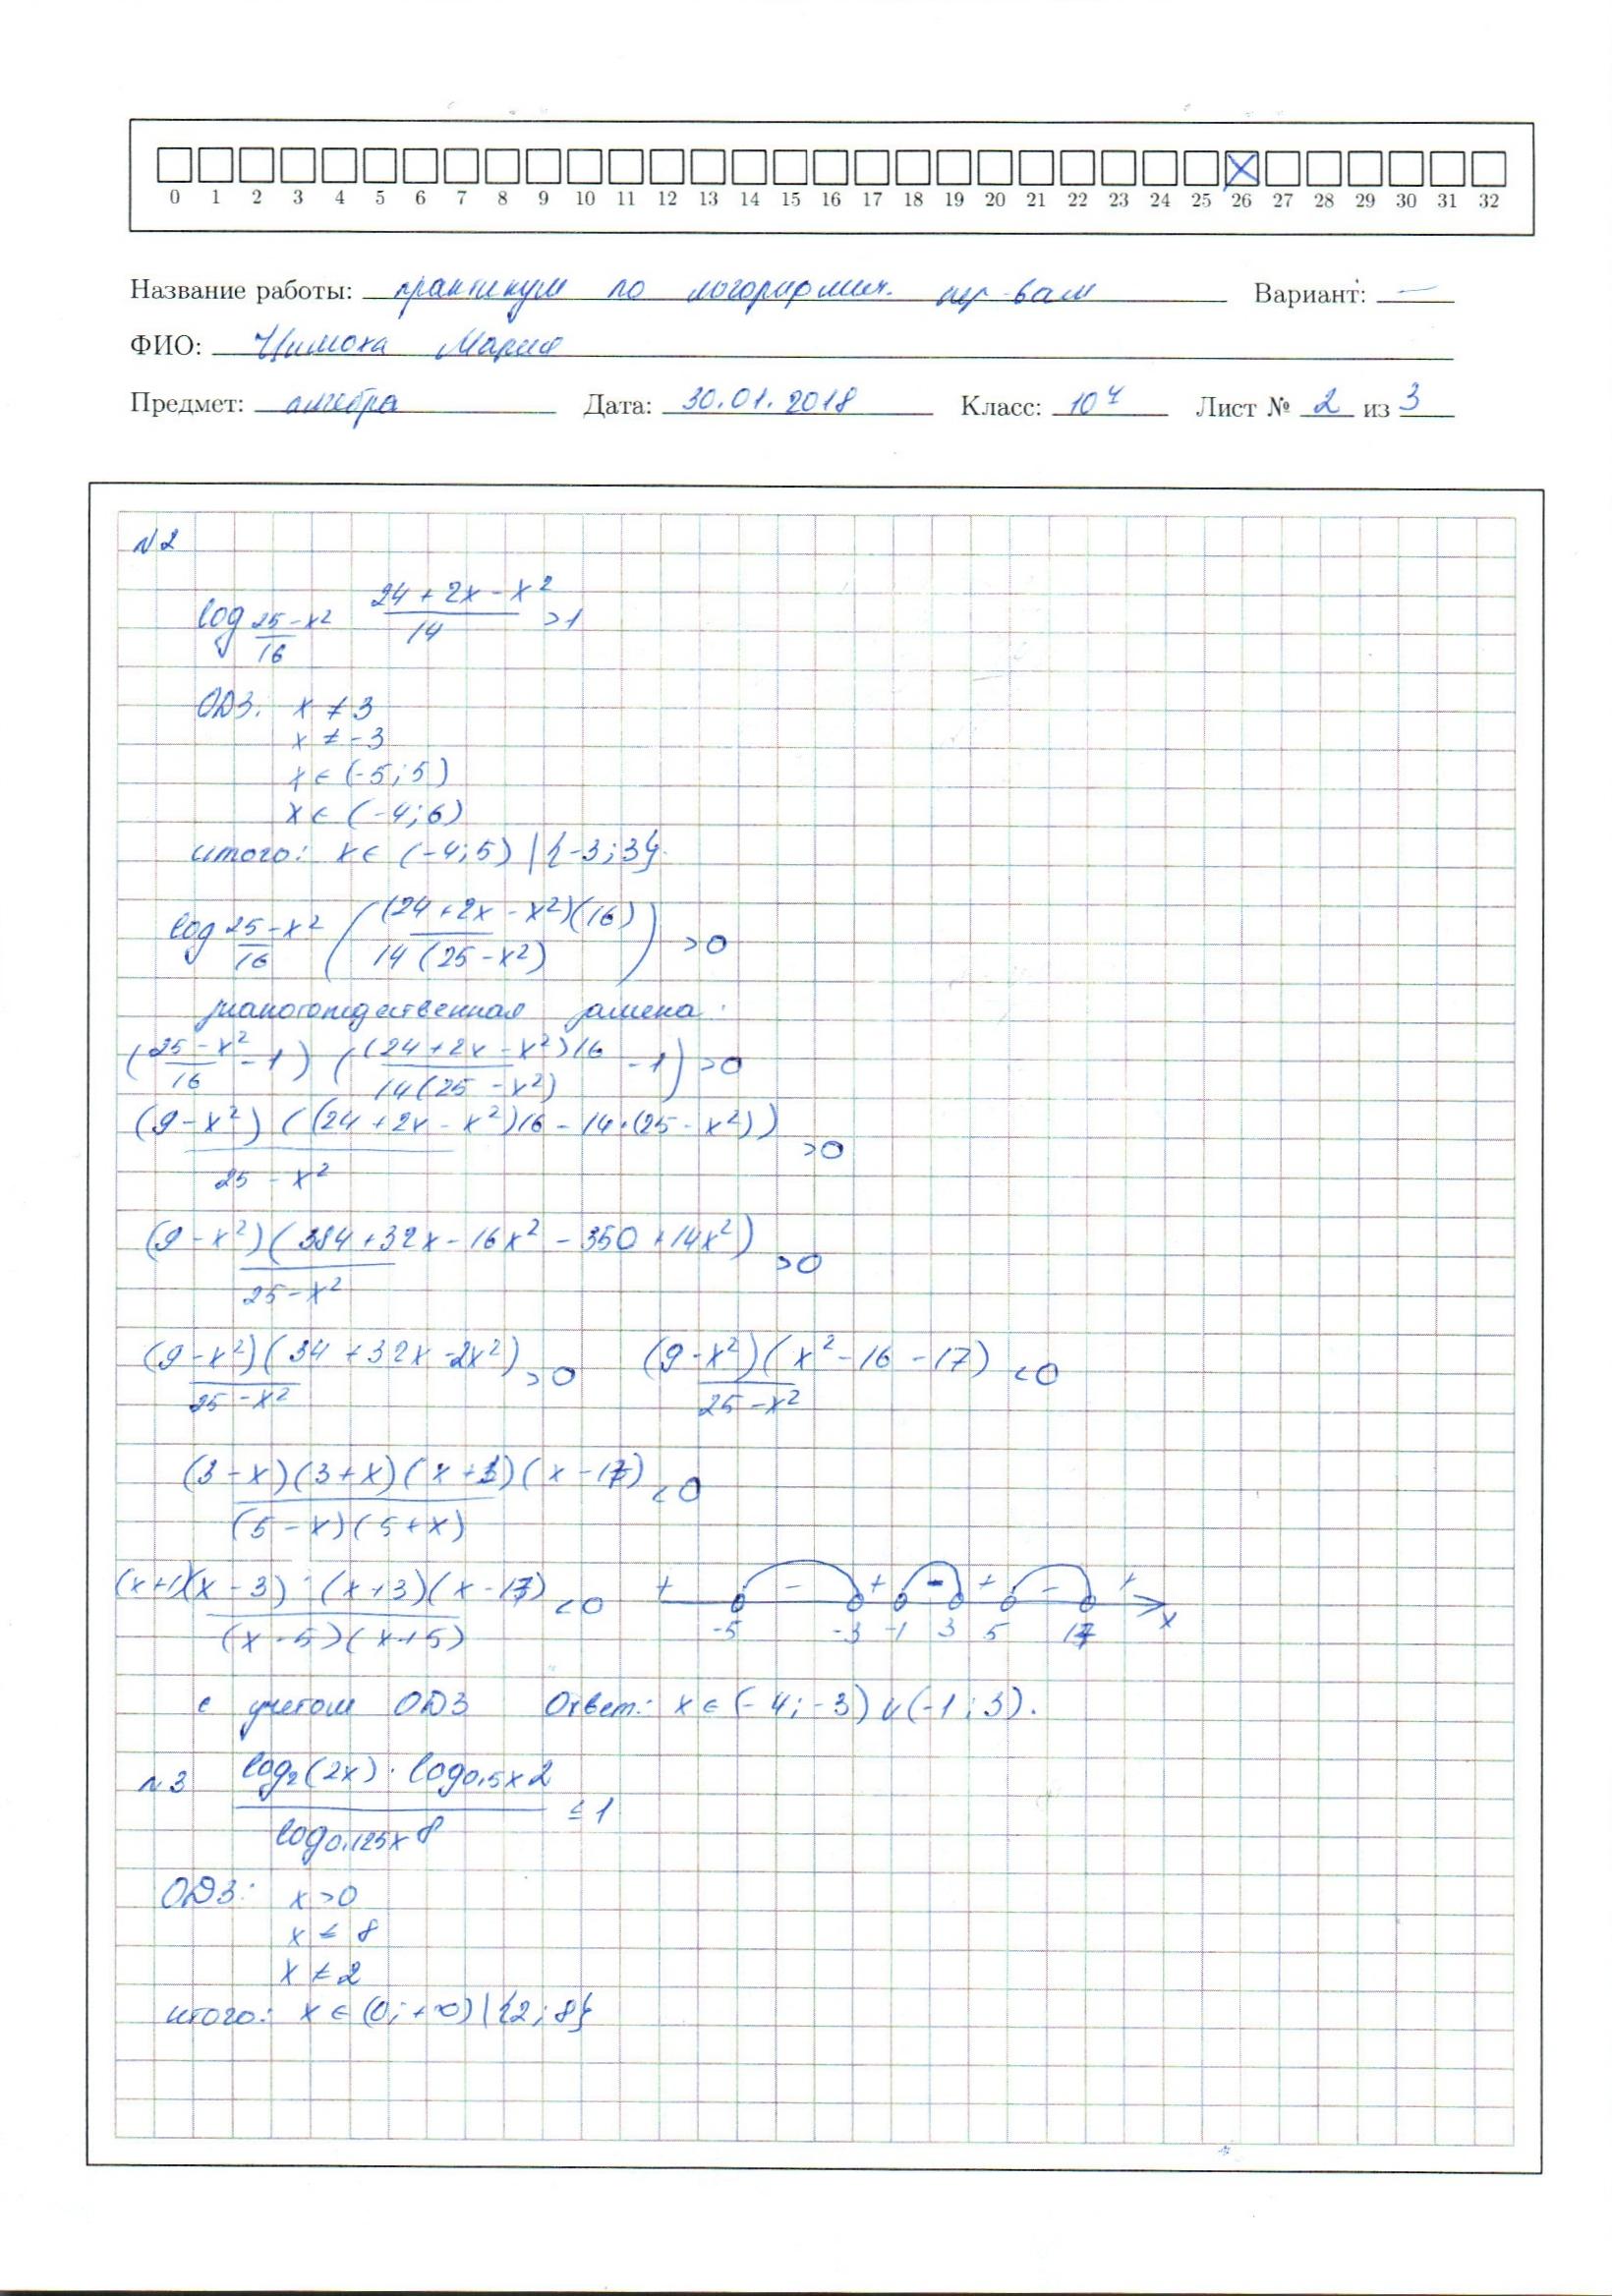 0 1 2 3 4 5 6 7 8 9 10 11 12 13 14 15 16 17 18 19 20 21 22 23 24 25 26 27 28 29 30 31 32
Название работы: практикум по логорифмич. нер-вам Вариант: —
ФИО: Цимоха Мария
Предмет: алгебра Дата: 30.01.2018 Класс: 10 Ч Лист № 2 из 3
N2
log_{(25-x²)/16} (24+2x-x²)/14 >1
ОДЗ: x ≠ 3
x ≠ -3
x ∈ (-5;5)
x ∈ (-4;6)
итого: x ∈ (-4;5) | {-3;3}.
log_{(25-x²)/16} ((24+2x-x²)(16)/14(25-x²)) >0
знакотождественная замена:
((25-x²)/16 - 1) ((24+2x-x²)16/14(25-x²) - 1) >0
(9-x²)((24+2x-x²)16-14·(25-x²))/25-x² >0
(9-x²)(384+32x-16x²-350+14x²)/25-x² >0
(9-x²)(34+32x-2x²)/25-x² >0 (9-x²)(x²-16-17)/25-x² <0
(3-x)(3+x)(x+1)(x-17)/(5-x)(5+x) <0
(x+1)(x-3)·(x+3)(x-17)/(x-5)(x+5) <0 + - + - + - +
-5 -3 -1 3 5 17 x
с учетом ОДЗ Ответ: x ∈ (-4;-3) ∪ (-1;3).
N3 log₂(2x)·log_{0,5x}2/log_{0,125x}8 ≤1
ОДЗ: x >0
x ≠ 8
x ≠ 2
итого: x ∈ (0;+∞) | {2;8}